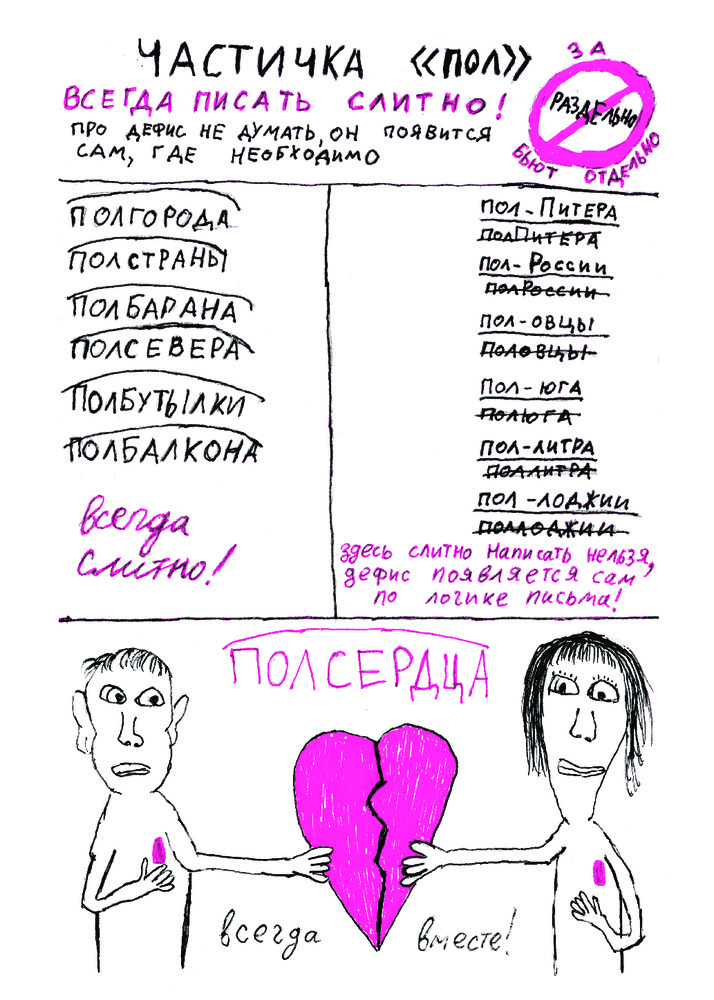 ЧАСТИЧКА «ПОЛ»
ВСЕГДА ПИСАТЬ СЛИТНО!
ПРО ДЕФИС НЕ ДУМАТЬ, ОН ПОЯВИТСЯ
САМ, ГДЕ НЕОБХОДИМО
ЗА
РАЗДЕЛЬНО
БЬЮТ ОТДЕЛЬНО
ПОЛГОРОДА
ПОЛСТРАНЫ
ПОЛБАРАНА
ПОЛСЕВЕРА
ПОЛБУТЫЛКИ
ПОЛБАЛКОНА
всегда
слитно!
ПОЛ-ПИТЕРА
ПОЛПИТЕРА
ПОЛ-РОССИИ
ПОЛРОССИИ
ПОЛ-ОВЦЫ
ПОЛОВЦЫ
ПОЛ-ЮГА
ПОЛЮГА
ПОЛ-ЛИТРА
ПОЛЛИТРА
ПОЛ-ЛОДЖИИ
ПОЛЛОДЖИИ
здесь слитно написать нельзя,
дефис появляется сам
по логике письма!
ПОЛСЕРДЦА
всегда вместе!